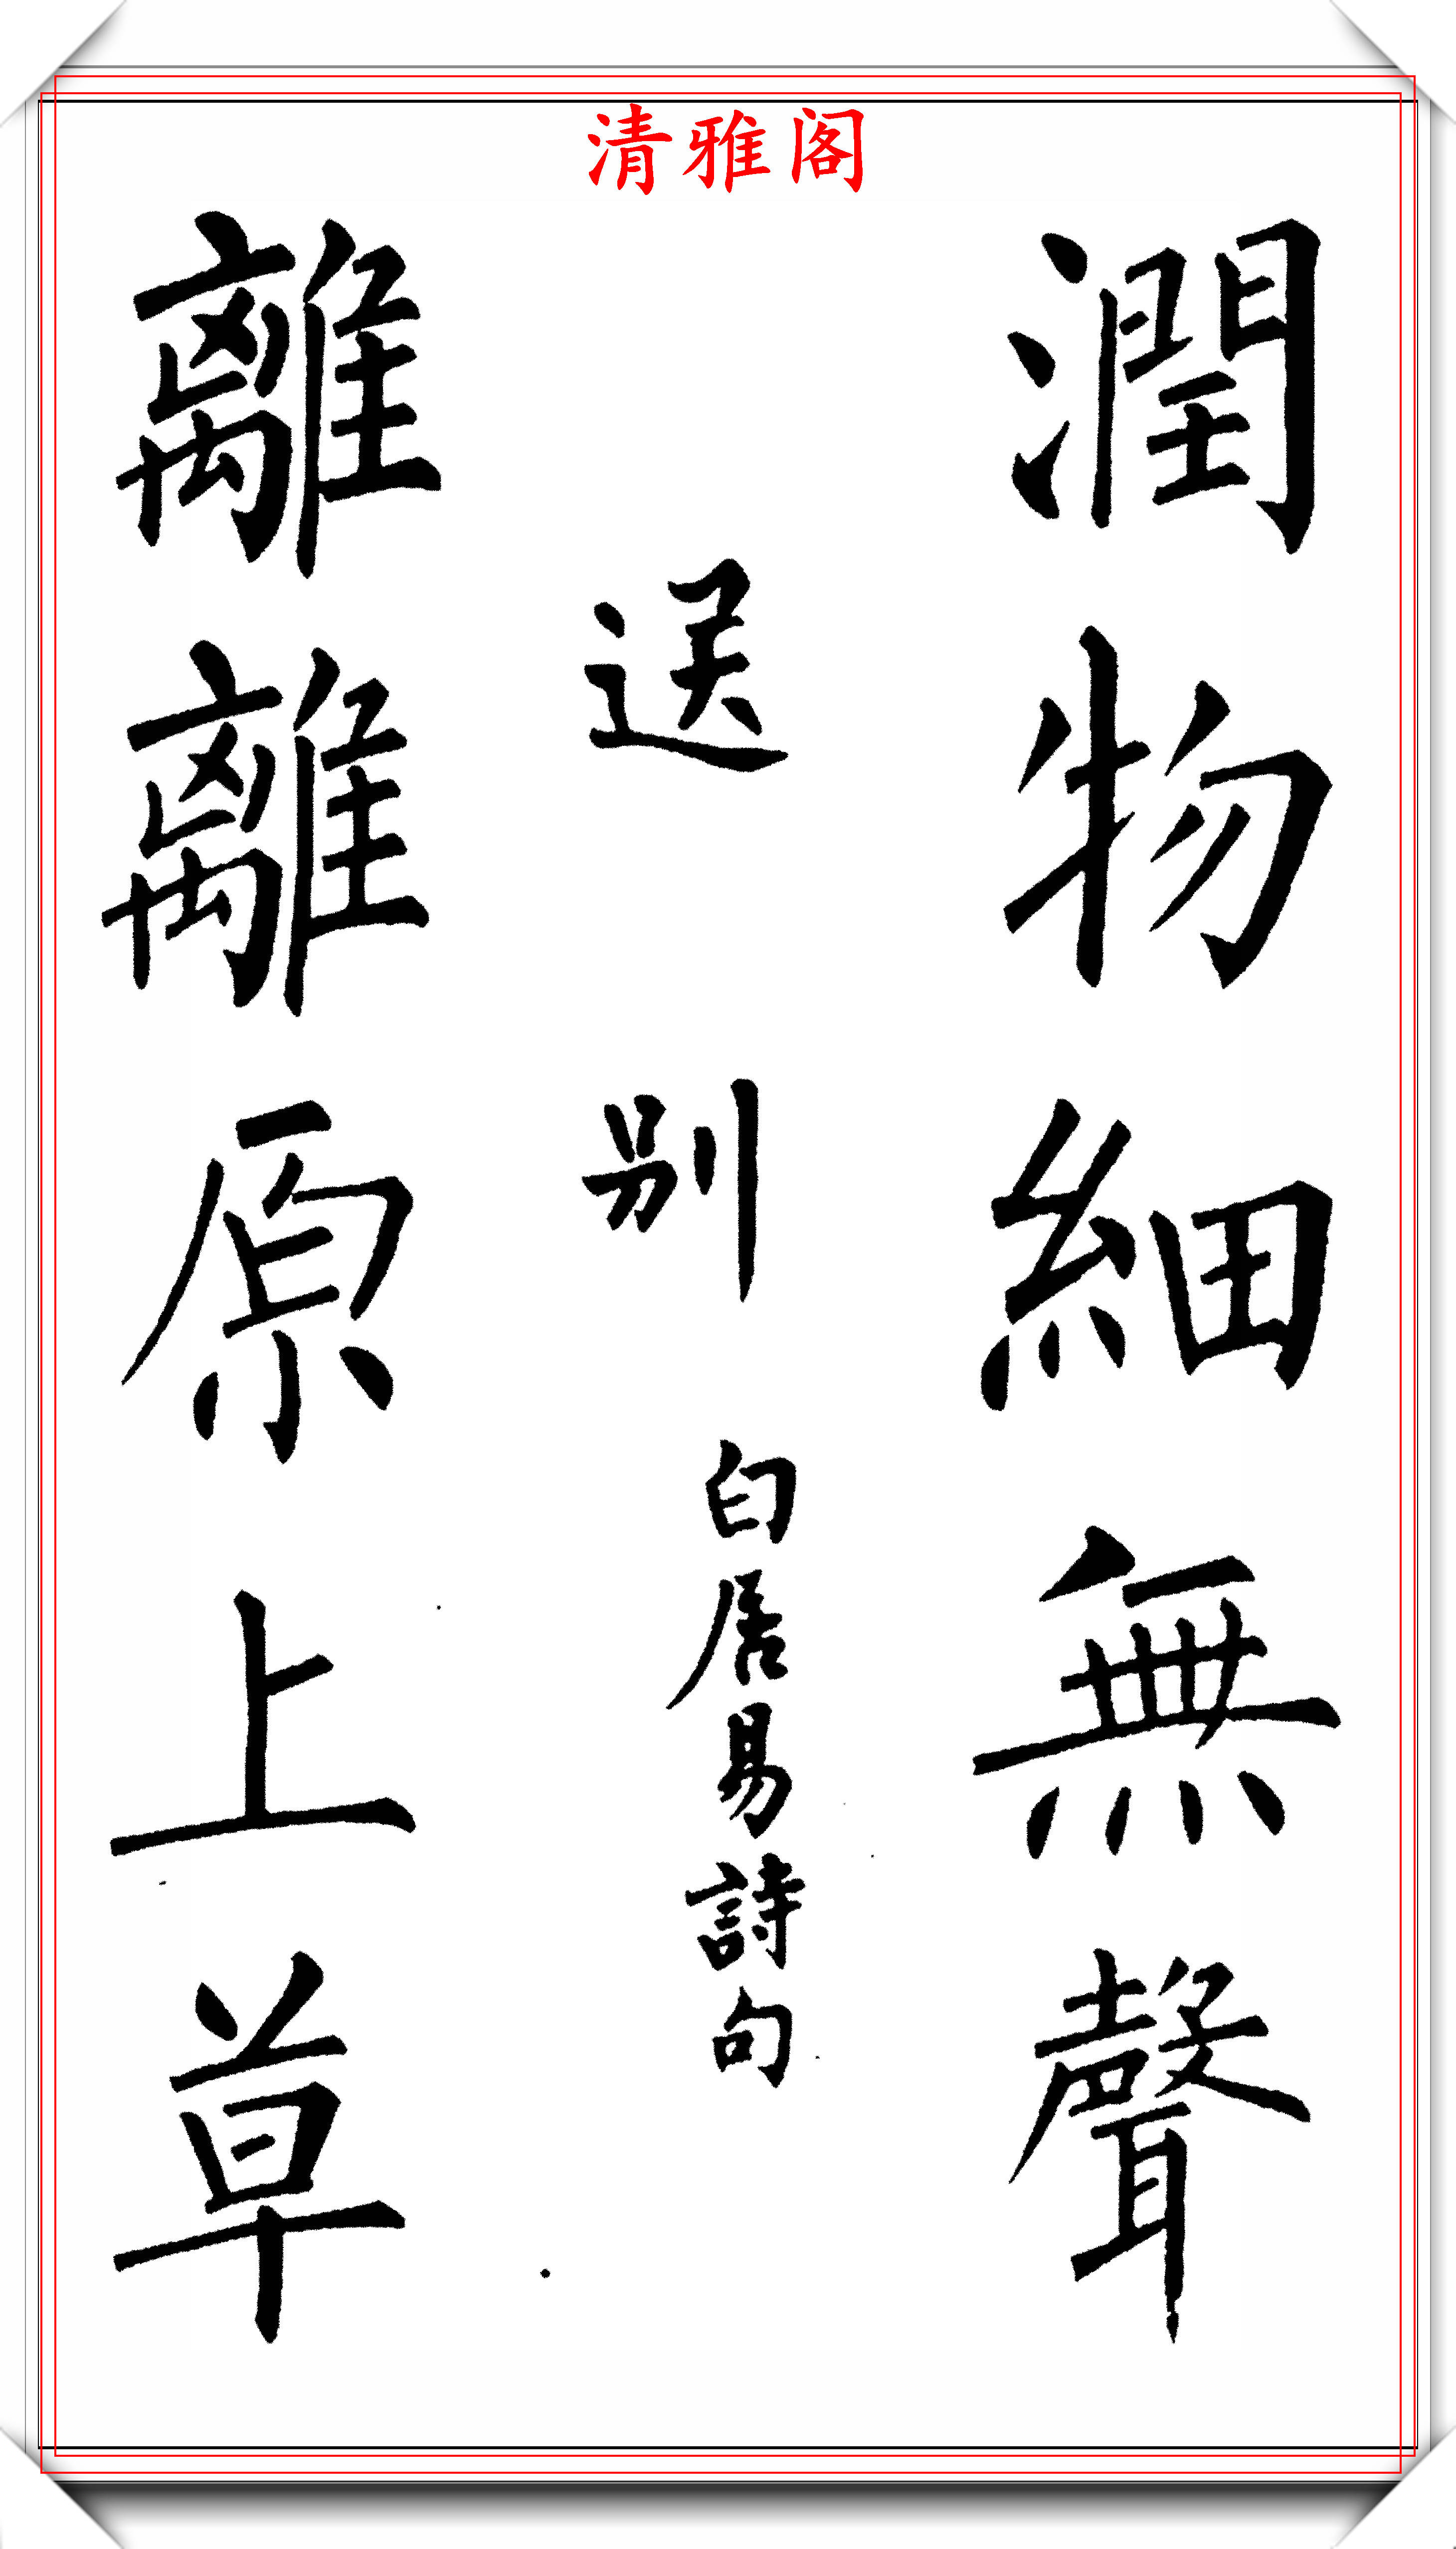 清雅阁
潤物細無聲
送别
白居易詩句
離離原上草